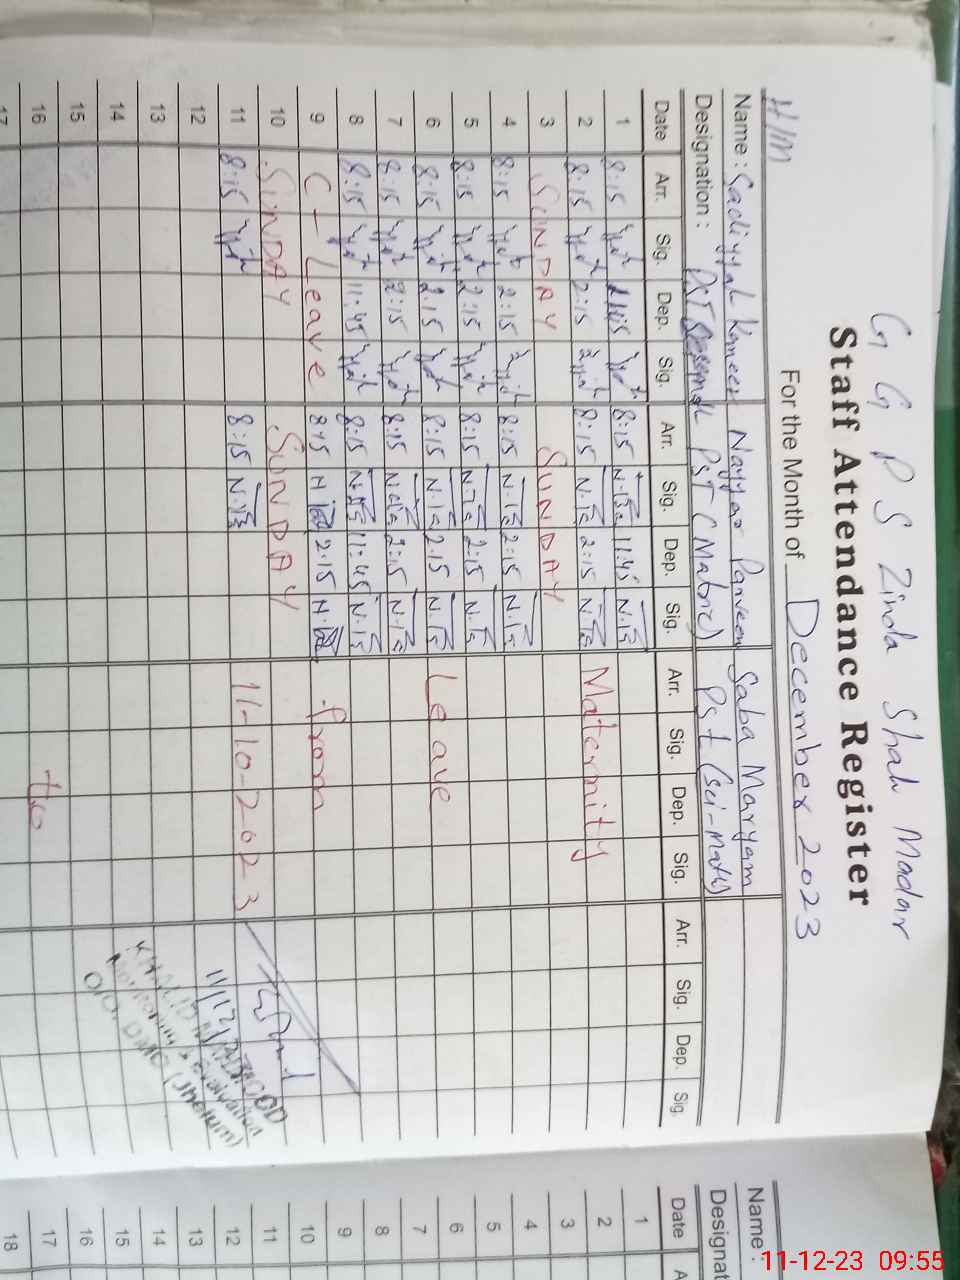 G G P S Zinda Shah Madar
Staff Attendance Register
For the Month of December 2023
H/M
Name : Sadiyyah Kaneez Nayyar Parveen Saba Maryam
Designation : PST (Matric) PST (Sci-Math)
Date Arr. Sig. Dep. Sig. Arr. Sig. Dep. Sig. Arr. Sig. Dep. Sig. Arr. Sig. Dep. Sig.
1 8:15 11:45 8:15 11:45
2 8:15 2:15 8:15 2:15 Maternity
3 SUNDAY SUNDAY
4 8:15 2:15 8:15 2:15
5 8:15 2:15 8:15 2:15
6 8:15 2:15 8:15 2:15 Leave
7 8:15 2:15 8:15 2:15
8 8:15 11:45 8:15 11:45
9 C - Leave 8:15 2:15 from
10 SUNDAY SUNDAY
11 8:15 8:15 11-10-2023
12 11/12/
13 KHALID MEHMOOD
14 Monitoring & evaluation
15 O/O DMO (Jhelum)
16 to
17
Name :
Designat
Date A
1
2
3
4
5
6
7
8
9
10
11
12
13
14
15
16
17
18
11-12-23 09:55